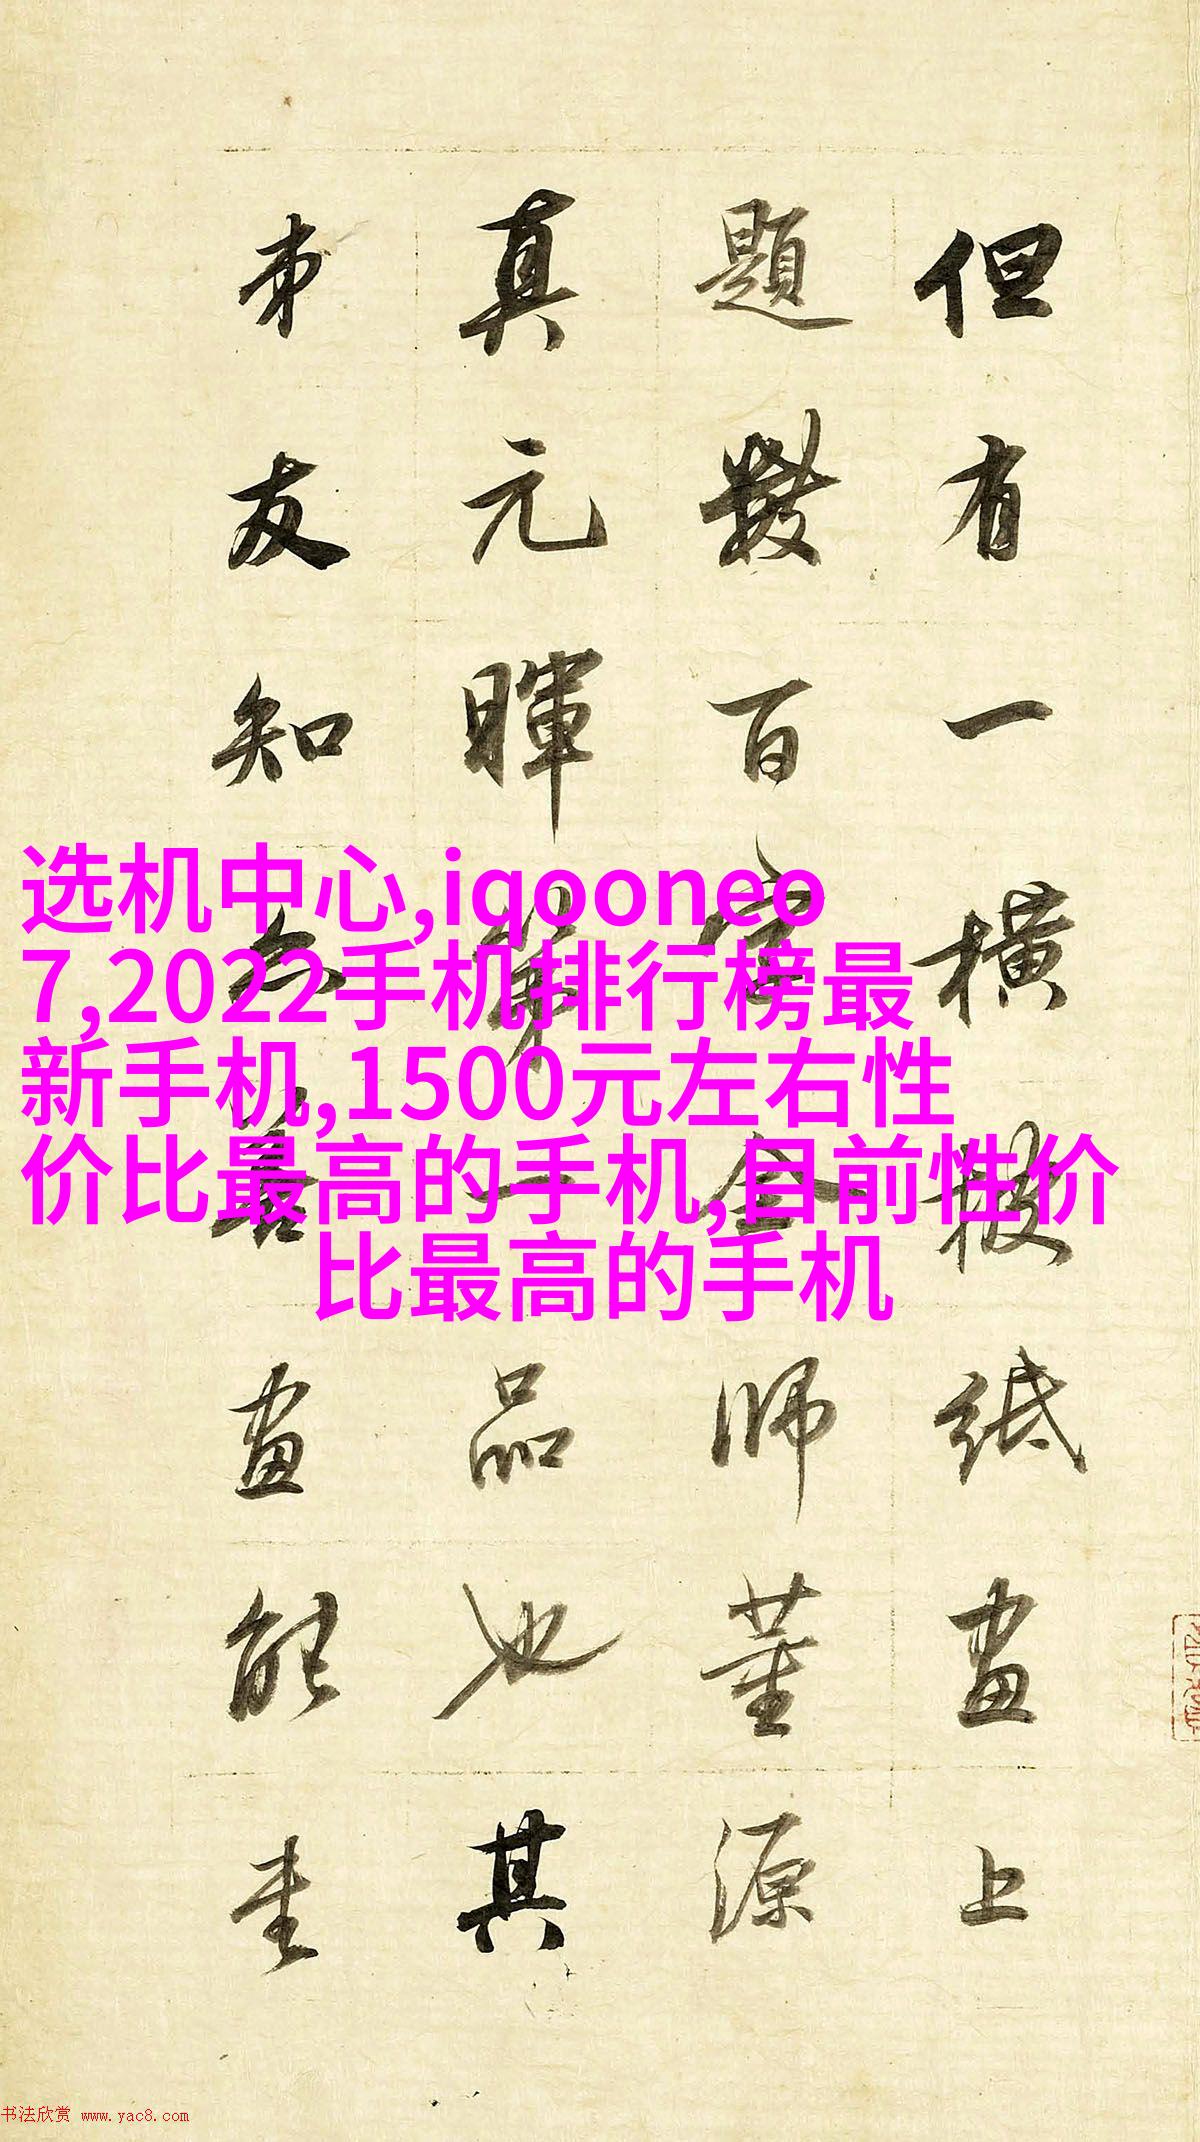 但有一橫披紙畫上
題數百官全師董源
真元暉第一品也其
弟友知公善畫能書
选机中心,iqooneo
7,2022手机排行榜最
新手机,1500元左右性
价比最高的手机,目前性价
比最高的手机
书法欣赏 www.yac8.com